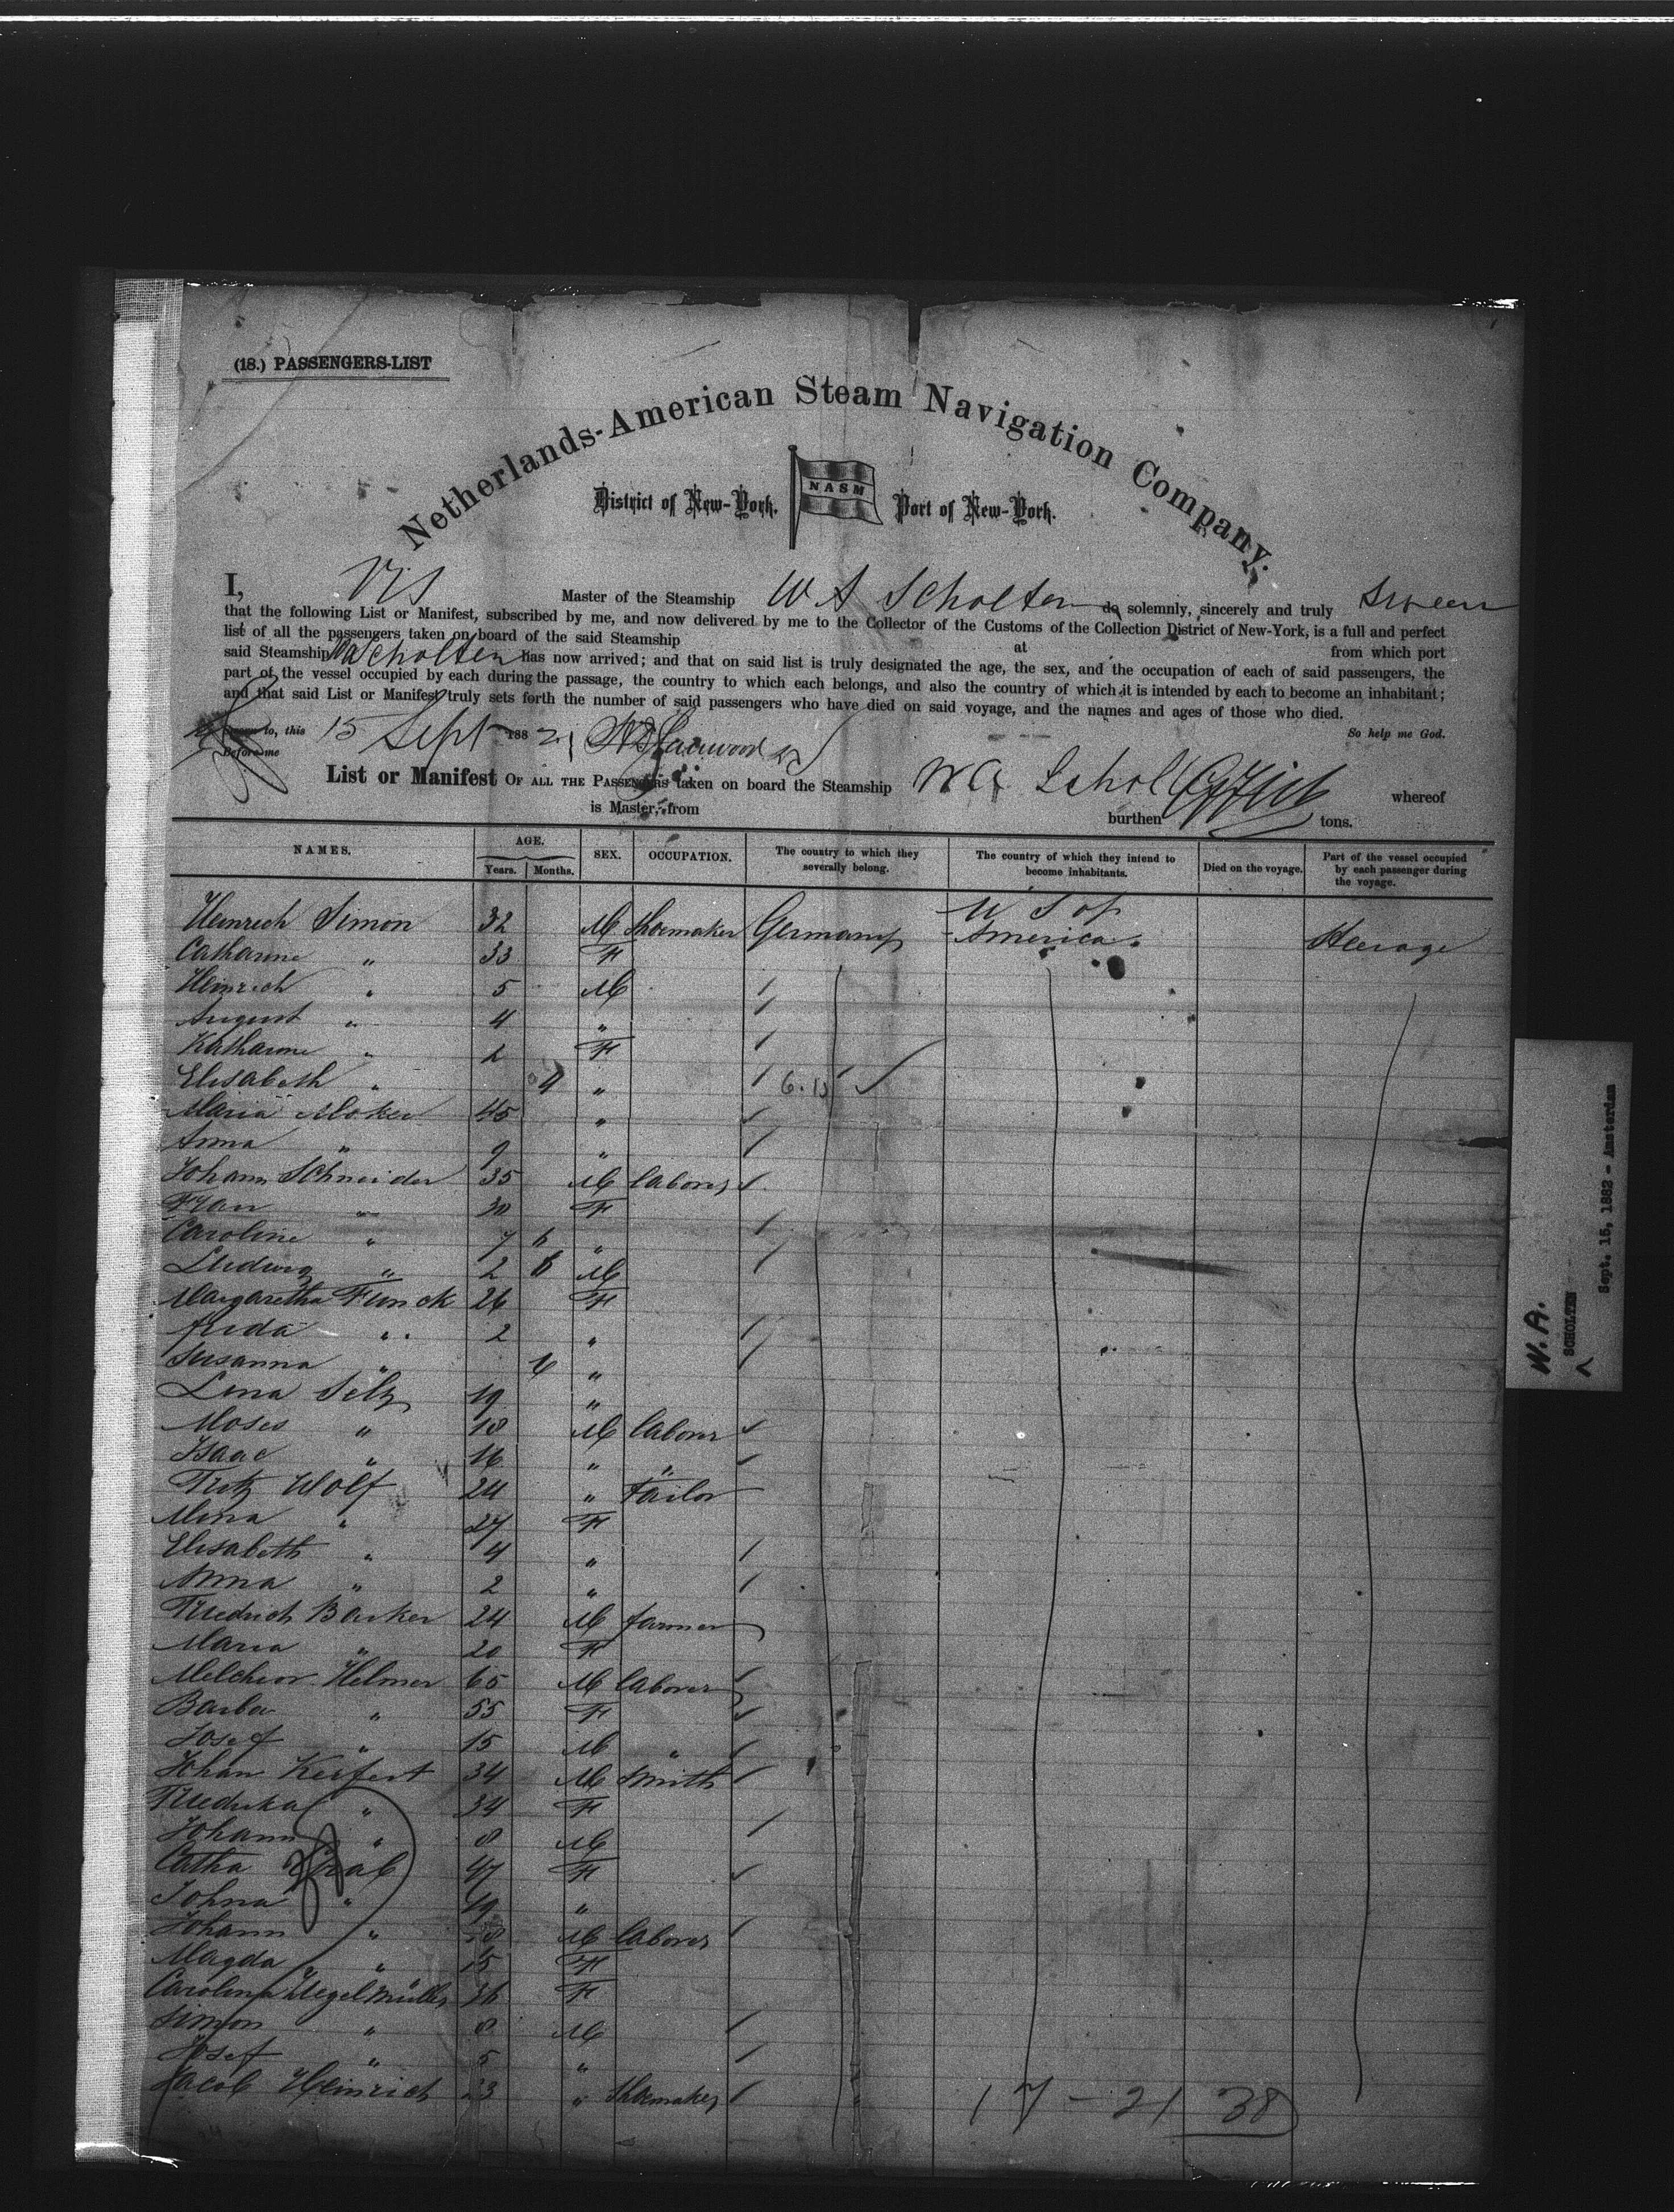 (18.) PASSENGERS-LIST
Netherlands-American Steam Navigation Company.
District of New-York. NASM Port of New-York.
I, Vis Master of the Steamship W A Scholten do solemnly, sincerely and truly Swear
that the following List or Manifest, subscribed by me, and now delivered by me to the Collector of the Customs of the Collection District of New-York, is a full and perfect
list of all the passengers taken on board of the said Steamship at from which port
said Steamship WA Scholten has now arrived; and that on said list is truly designated the age, the sex, and the occupation of each of said passengers, the
part of the vessel occupied by each during the passage, the country to which each belongs, and also the country of which it is intended by each to become an inhabitant;
and that said List or Manifest truly sets forth the number of said passengers who have died on said voyage, and the names and ages of those who died.
Sworn to, this 15 Sept 1882 So help me God.
Before me
List or Manifest OF ALL THE PASSENGERS taken on board the Steamship W A Schol whereof
is Master, from burthen tons.
NAMES. AGE. Years. Months. SEX. OCCUPATION. The country to which they severally belong. The country of which they intend to become inhabitants. Died on the voyage. Part of the vessel occupied by each passenger during the voyage.
Heinrich Simon 32 M Shoemaker Germany U S of America. Steerage
Catharine " 33 F
Heinrich " 5 M
August " 4 "
Katharine " 2 F
Elisabeth " 4 "
Maria Moker 45 "
Anna " 9 "
Johann Schneider 35 M laborer
Frau " 30 F
Caroline " 7 6 "
Ludwig " 2 6 M
Margaretha Funck 26 F
Frida " 2 "
Susanna " 6 "
Lena Selz 19 "
Moses " 18 M laborer
Isaac " 16 " "
Fritz Wolf 24 " Tailor
Mina " 27 F
Elisabeth " 4 "
Anna " 2 "
Friedrich Barker 24 M farmer
Maria " 20 F
Melchior Helmer 65 M laborer
Barba " 55 F
Josef " 15 M "
Johan Keifert 34 M Smith
Friedrika " 34 F
Johann " 8 M
Catha Grab 47 F
Johna " 19 "
Johann " M laborer
Magda " 15 F
Carolina Hegelmüller 36 F
Simon " 8 M
Josef " 5 "
Jacob Heinrich 23 " Shoemaker
17 - 21 38
W.A.
SCHOLTEN
Sept. 15, 1882 - Amsterdam